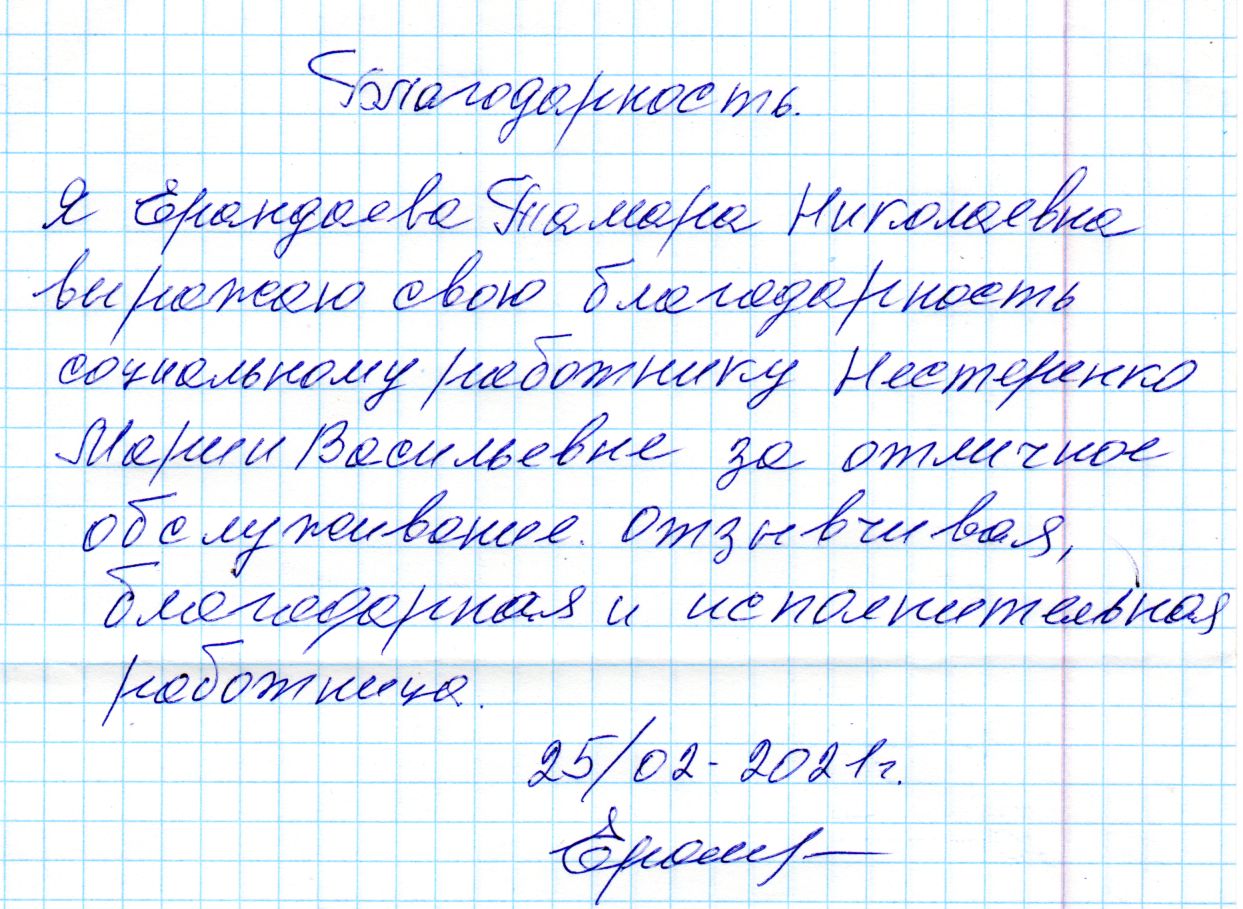 Благодарность.
Я Ерандаева Тамара Николаевна
выражаю свою благодарность
социальному работнику Нестеренко
Марии Васильевне за отличное
обслуживание. Отзывчивая,
благодарная и исполнительная
работница.
25/02-2021г.